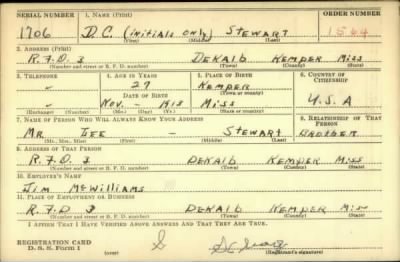 SERIAL NUMBER 1. NAME (Print) ORDER NUMBER
1706 D.C. (initials only) STEWART 1564
(First) (Middle) (Last)
2. ADDRESS (Print)
R.F.D. 3 DEKALB KEMPER MISS
(Number and street or R. F. D. number) (Town) (County) (State)
3. TELEPHONE 4. AGE IN YEARS 5. PLACE OF BIRTH 6. COUNTRY OF CITIZENSHIP
- 27 KEMPER
DATE OF BIRTH (Town or county)
- NOV. - 1913 MISS U.S.A
(Exchange) (Number) (Mo.) (Day) (Yr.) (State or country)
7. NAME OF PERSON WHO WILL ALWAYS KNOW YOUR ADDRESS 8. RELATIONSHIP OF THAT PERSON
MR. LEE - STEWART BROTHER
(Mr., Mrs., Miss) (First) (Middle) (Last)
9. ADDRESS OF THAT PERSON
R.F.D. 3 DEKALB KEMPER MISS
(Number and street or R. F. D. number) (Town) (County) (State)
10. EMPLOYER'S NAME
JIM McWILLIAMS
11. PLACE OF EMPLOYMENT OR BUSINESS
R.F.D 3 DEKALB KEMPER MISS
(Number and street or R. F. D. number) (Town) (County) (State)
I AFFIRM THAT I HAVE VERIFIED ABOVE ANSWERS AND THAT THEY ARE TRUE.
REGISTRATION CARD
D. S. S. Form 1 (over) (Registrant's signature)